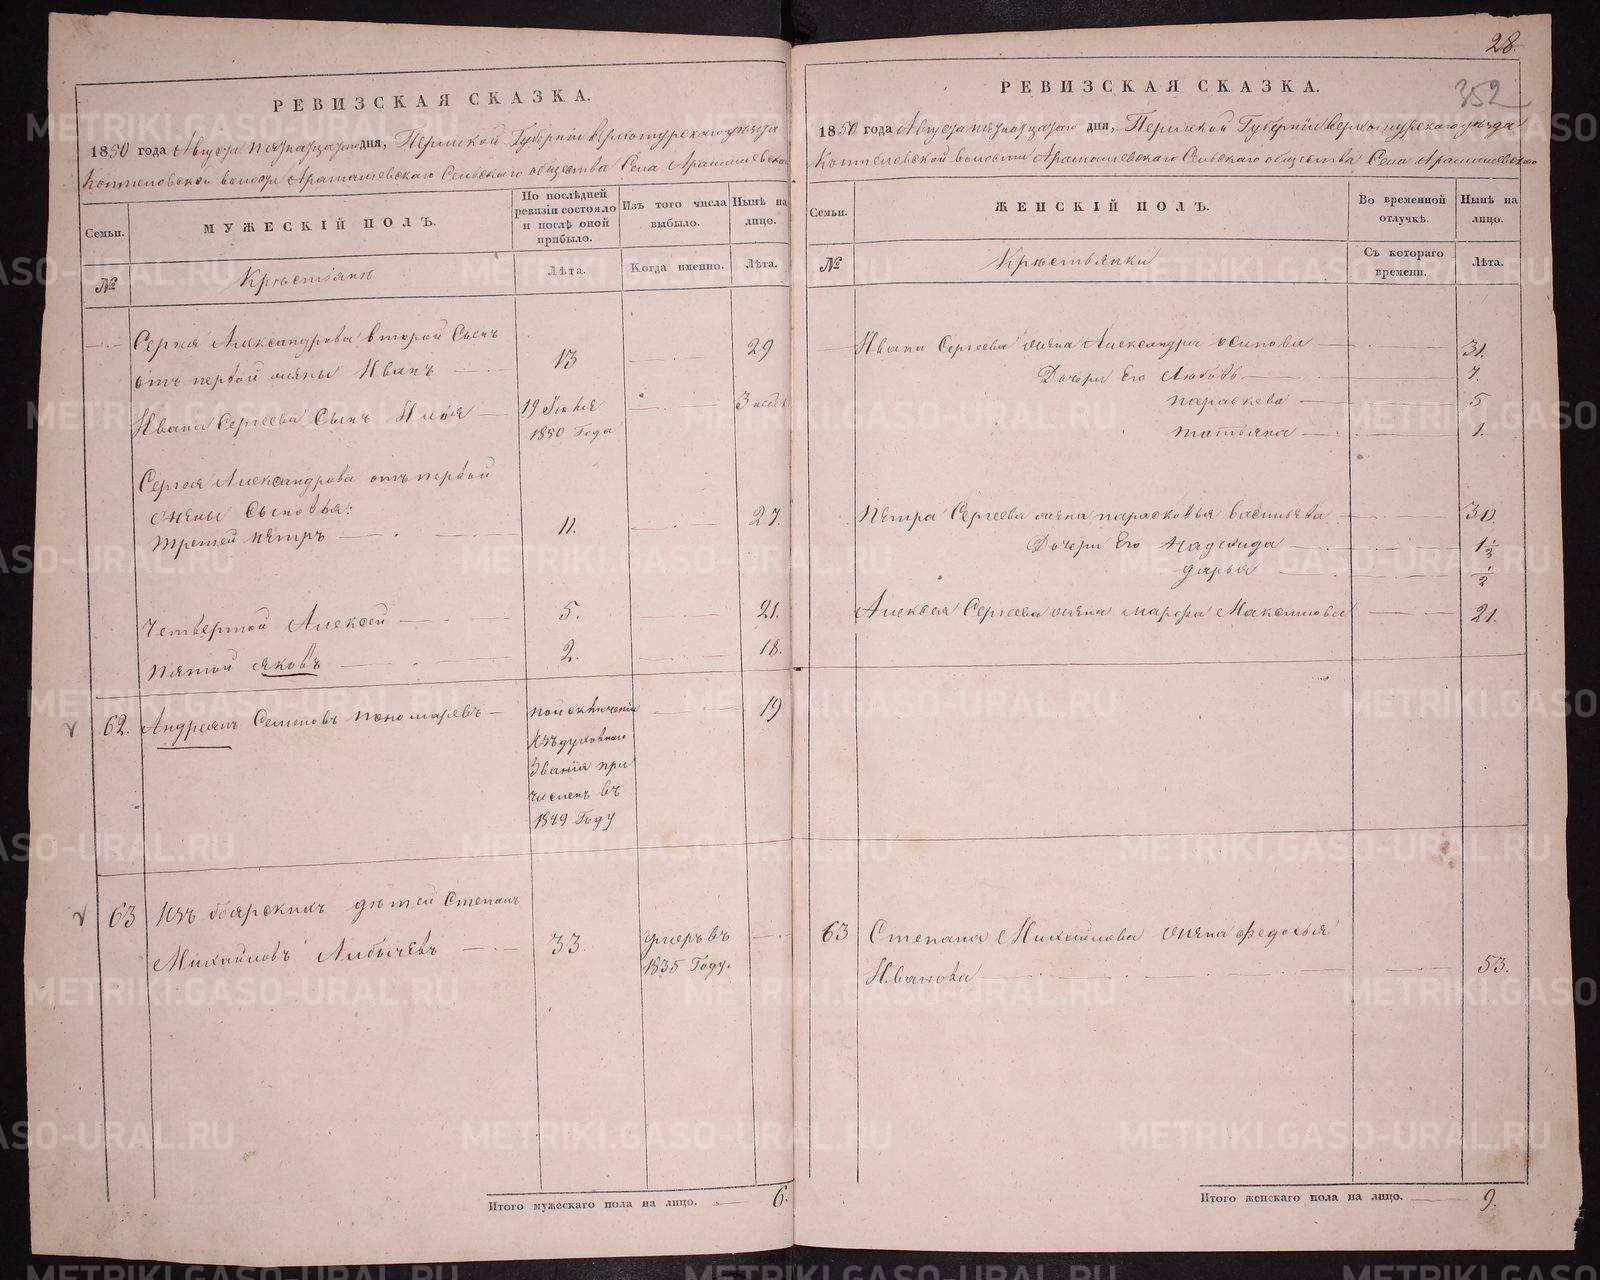 РЕВИЗСКАЯ СКАЗКА.
1850 года Августа пятнадцатого дня, Пермской Губернiи Верхотурскаго уѣзда
Коптеловской волости Арамашевскаго Сельскаго общества Села Арамашевскаго
Семьи.
МУЖЕСКIЙ ПОЛЪ.
По послѣдней ревизiи состояло и послѣ оной прибыло.
Изъ того числа выбыло.
Нынѣ на лицо.
№
Крѣстьянѣ
Лѣта.
Когда именно.
Лѣта.
Сергея Александрова второй Сынъ
отъ первой жены Иванъ 13 29
Ивана Сергеева Сынъ Илья 19 Iюня 1850 Года 3 недел
Сергея Александрова отъ первой
жены Сыновья:
третей Пѣтръ 11. 27.
Четвертой Алексей 5. 21.
Пятой Яковъ 2. 18.
62. Андреянъ Семеновъ Пономаревъ 19
поисключенiи
Изъ духовнаго
Званiя при
численъ въ
1849 Году
63 Изъ боярскихъ дѣтей Степанъ
Михайловъ Либычевъ 33. умеръ въ
1835 Году.
Итого мужескаго пола на лицо. 6.
28.
352
РЕВИЗСКАЯ СКАЗКА.
1850 года Августа пятнадцатаго дня, Пермской Губернiи Верхотурскаго уѣзда
Коптеловской волости Арамашевскаго Сельскаго общества Села Арамашевскаго
Семьи.
ЖЕНСКIЙ ПОЛЪ.
Во временной отлучкѣ.
Нынѣ на лицо.
№
Крѣстьянки
Съ котораго времени.
Лѣта.
Ивана Сергеева жена Александра Осипова 31.
Дочери Его Любовь 7.
Параскева 5
Татьяна 1.
Пѣтра Сергеева жена Парасковья Васильева 30.
Дочери Его Надежида 1 1/3
Дарья 1/2
Алексея Сергеева жена Марфа Максимова 21.
63 Степана Михайлова жена Федосья
Иванова 53.
Итого женскаго пола на лицо. 9.
METRIKI.GASO-URAL.RU